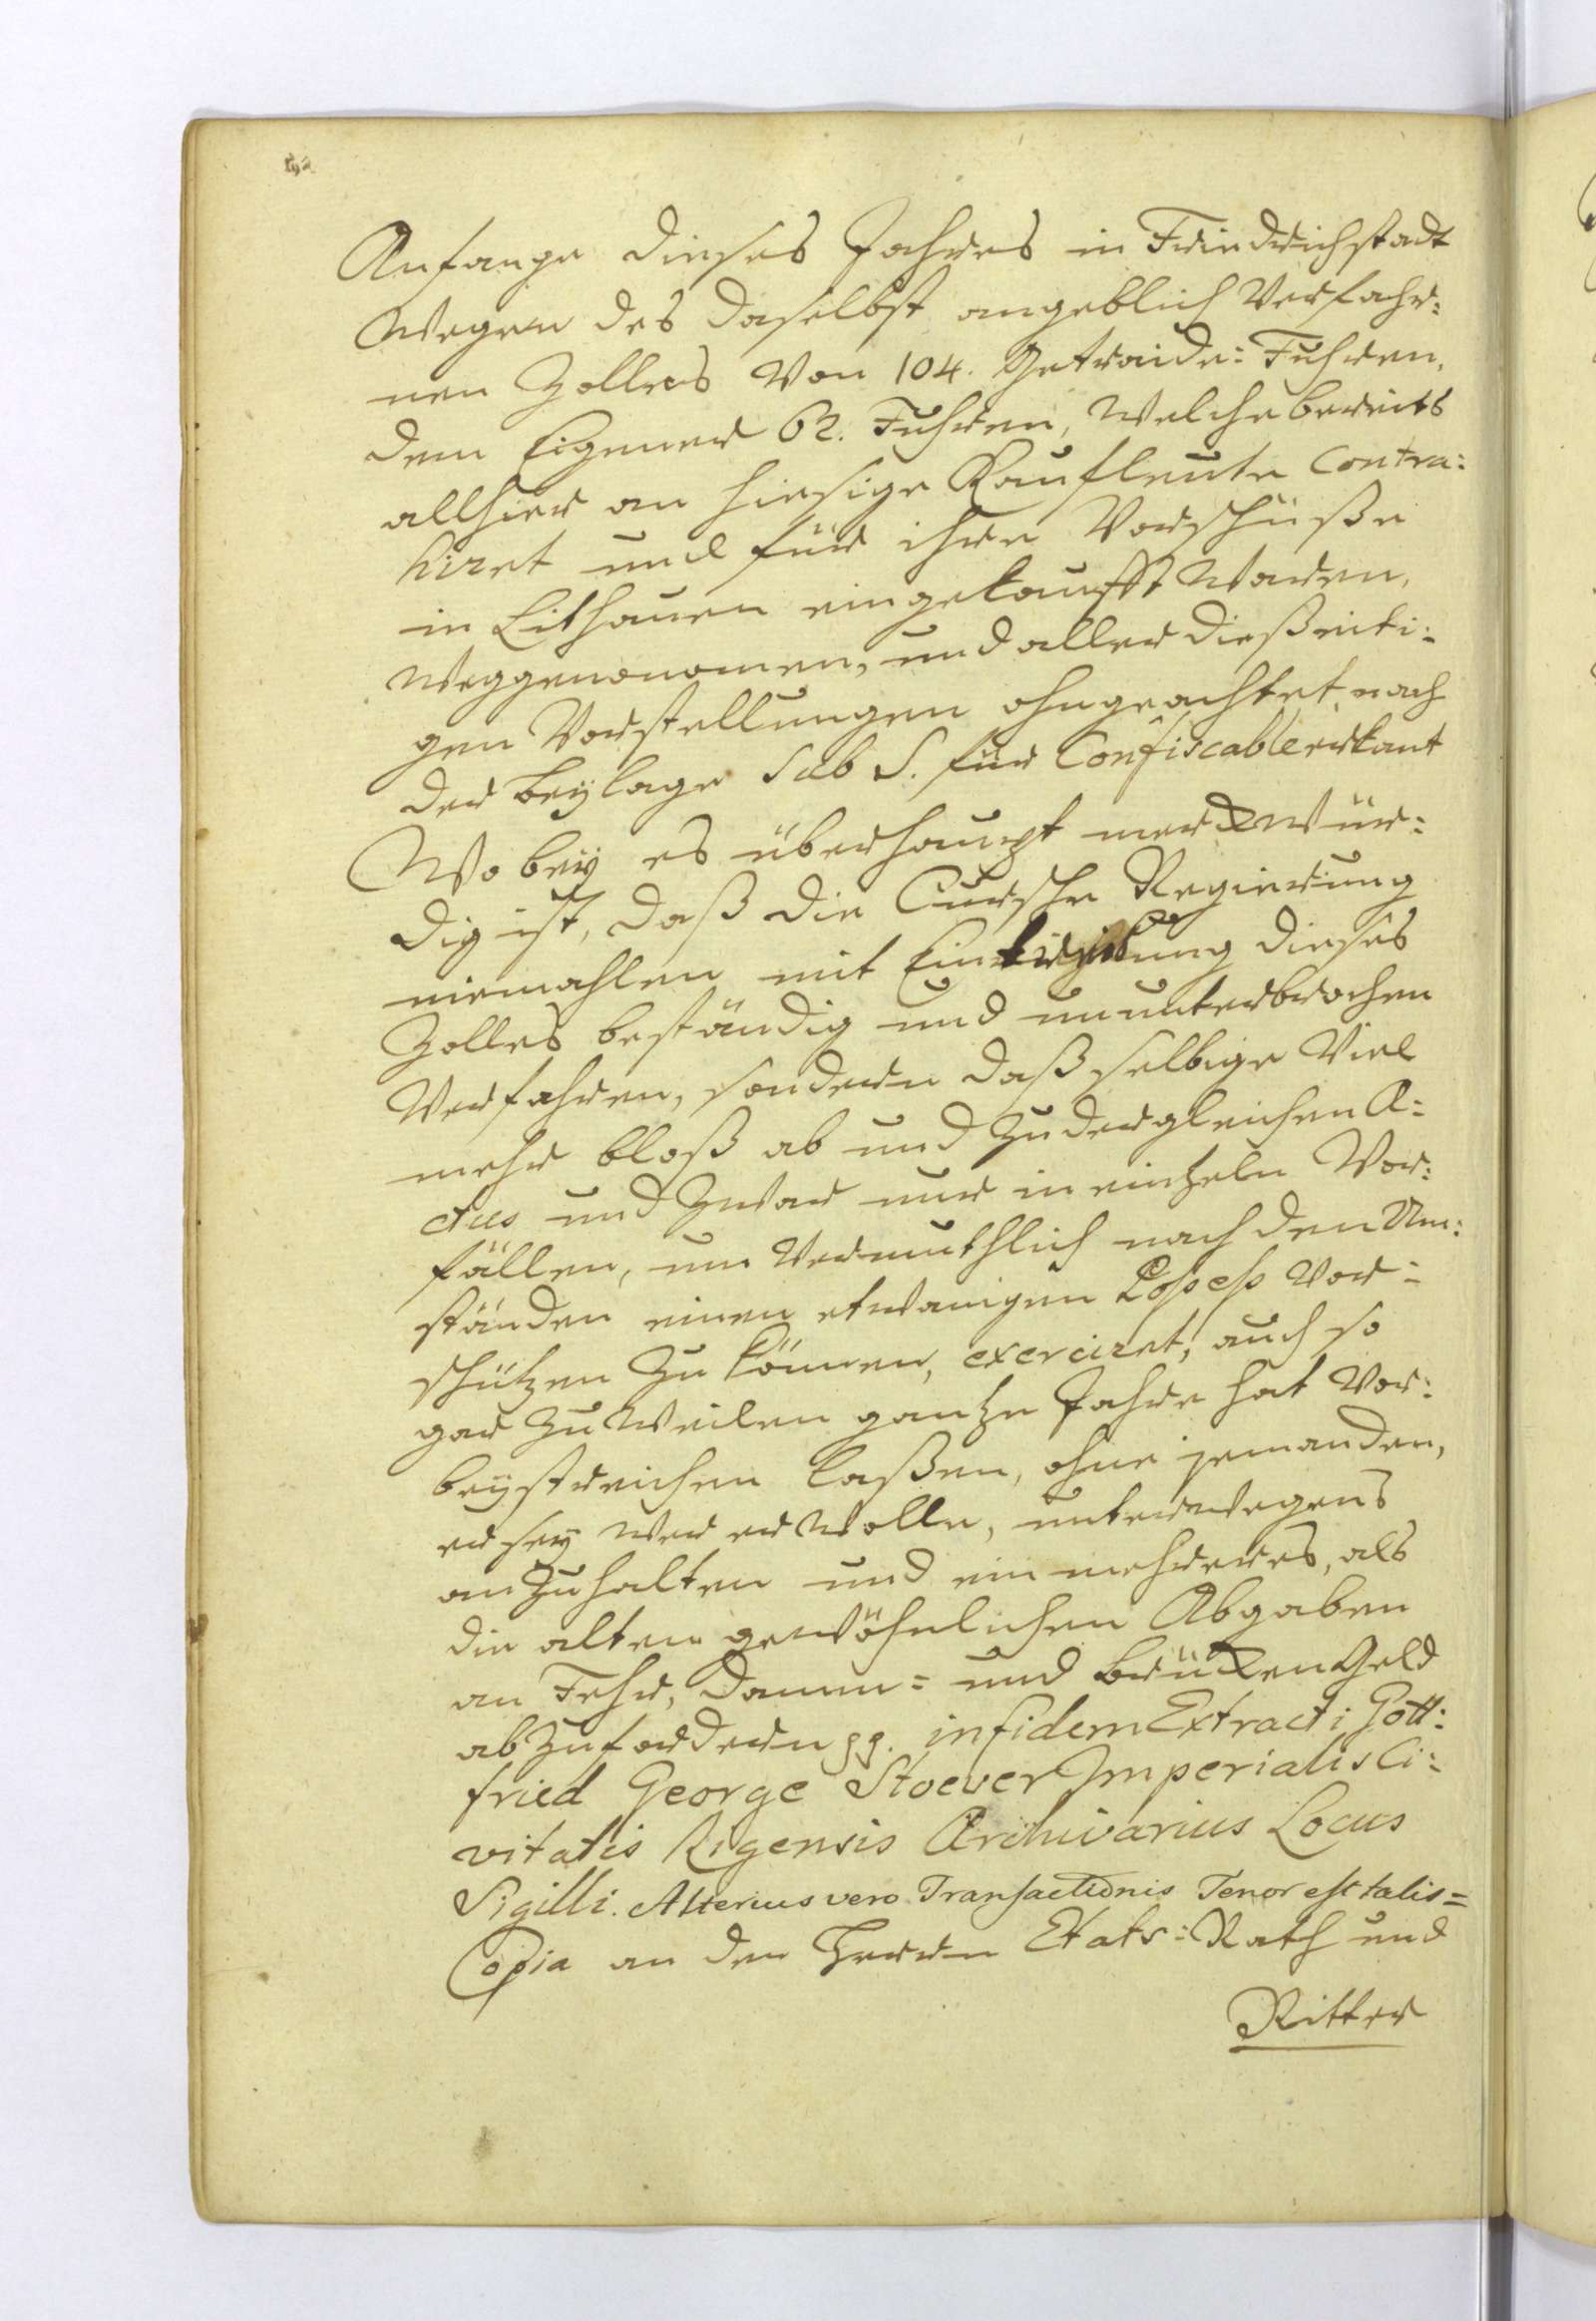 Anfange dieses Jahres in Friedrichstadt
Wegen des daselbst angeblich Verfahr-
nen Zolles Von 104. Getraide-Fuhren,
dem Eigener 62. Fuhren, Welche bereits
allhier an hiesige Kaufleute Contra-
hiret und für ihre Vorschüße
in Litthauen eingekaufft Waren,
Weggenommen, und aller dießeiti-
gen Vorstellungen ohngeachtet, nach
der Beylage sub S. für Confiscable erkant
Wobey es überhaupt merckwür-
dig ist, daß die Cursche Regierung
niemahlen mit Eintreibung dieses
Zolles beständig und ununterbrochen
Verfahren, sondern daß selbige Viel
mehr bloß ab und zu dergleichen A-
ctus und Zwar nur in eintzeln Vor-
fällen, um Vermuthlich nach den Um-
ständen einen etwanigen Possess Vor-
schützen zu können, exerciret, auch so
gar zu Weilen gantze Jahre hat Vor-
beystreichen laßen, ohne jemanden,
er sey Wer er Wolle, unterwegens
anzuhalten und ein mehreres, als
die alten gewöhnlichen Abgaben
an Fehr, Damm- und Brücken Geld
abzufordern pp. in fidem Extracti Gott-
fried George Stoever Imperialis Ci-
vitatis Rigensis Archivarius Locus
Sigilli. Alterius vero Transactionis Tenor est talis=
Copia an den Herrn Etats-Rath und
Ritter